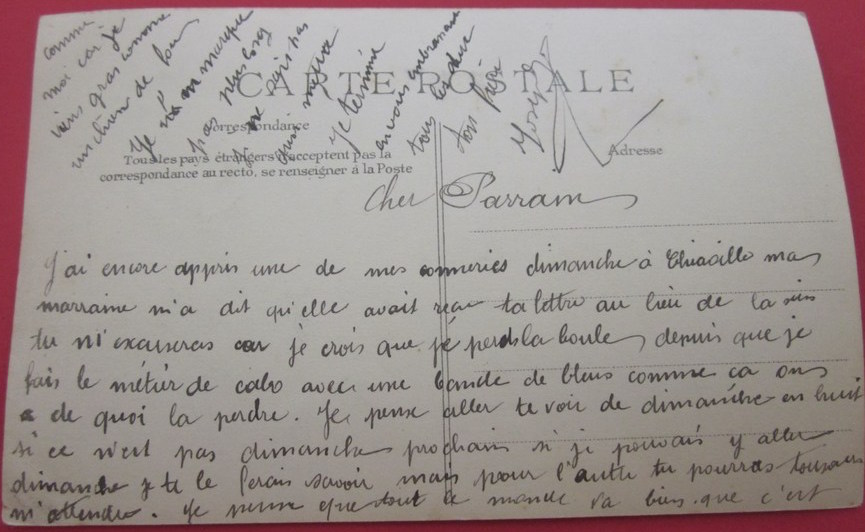 CARTE POSTALE
Correspondance
Tous les pays étrangers n'acceptent pas la
correspondance au recto, se renseigner à la Poste
Adresse
Cher Parrain
J'ai encore appris une de mes conneries dimanche à ma
marraine m'a dit qu'elle avait reçu ta lettre au lieu de la
tu m'excuseras car je crois que je perds la boule depuis que je
fais le métier de cabo avec une bande de bleus comme ca on
a de quoi la perdre. Je pense aller te voir de dimanche en huit
si ce n'est pas dimanche prochain si je pouvais y aller
dimanche je te le ferais savoir mais pour l'autre tu pourras toujours
m'attendre. Je pense que tout le monde va bien que c'est
comme
moi car je
viens gras comme
un chien de
Je n'ai
pas plus long
je ne sais pas
Je termine
en vous embrassant
tous
ton
Joseph